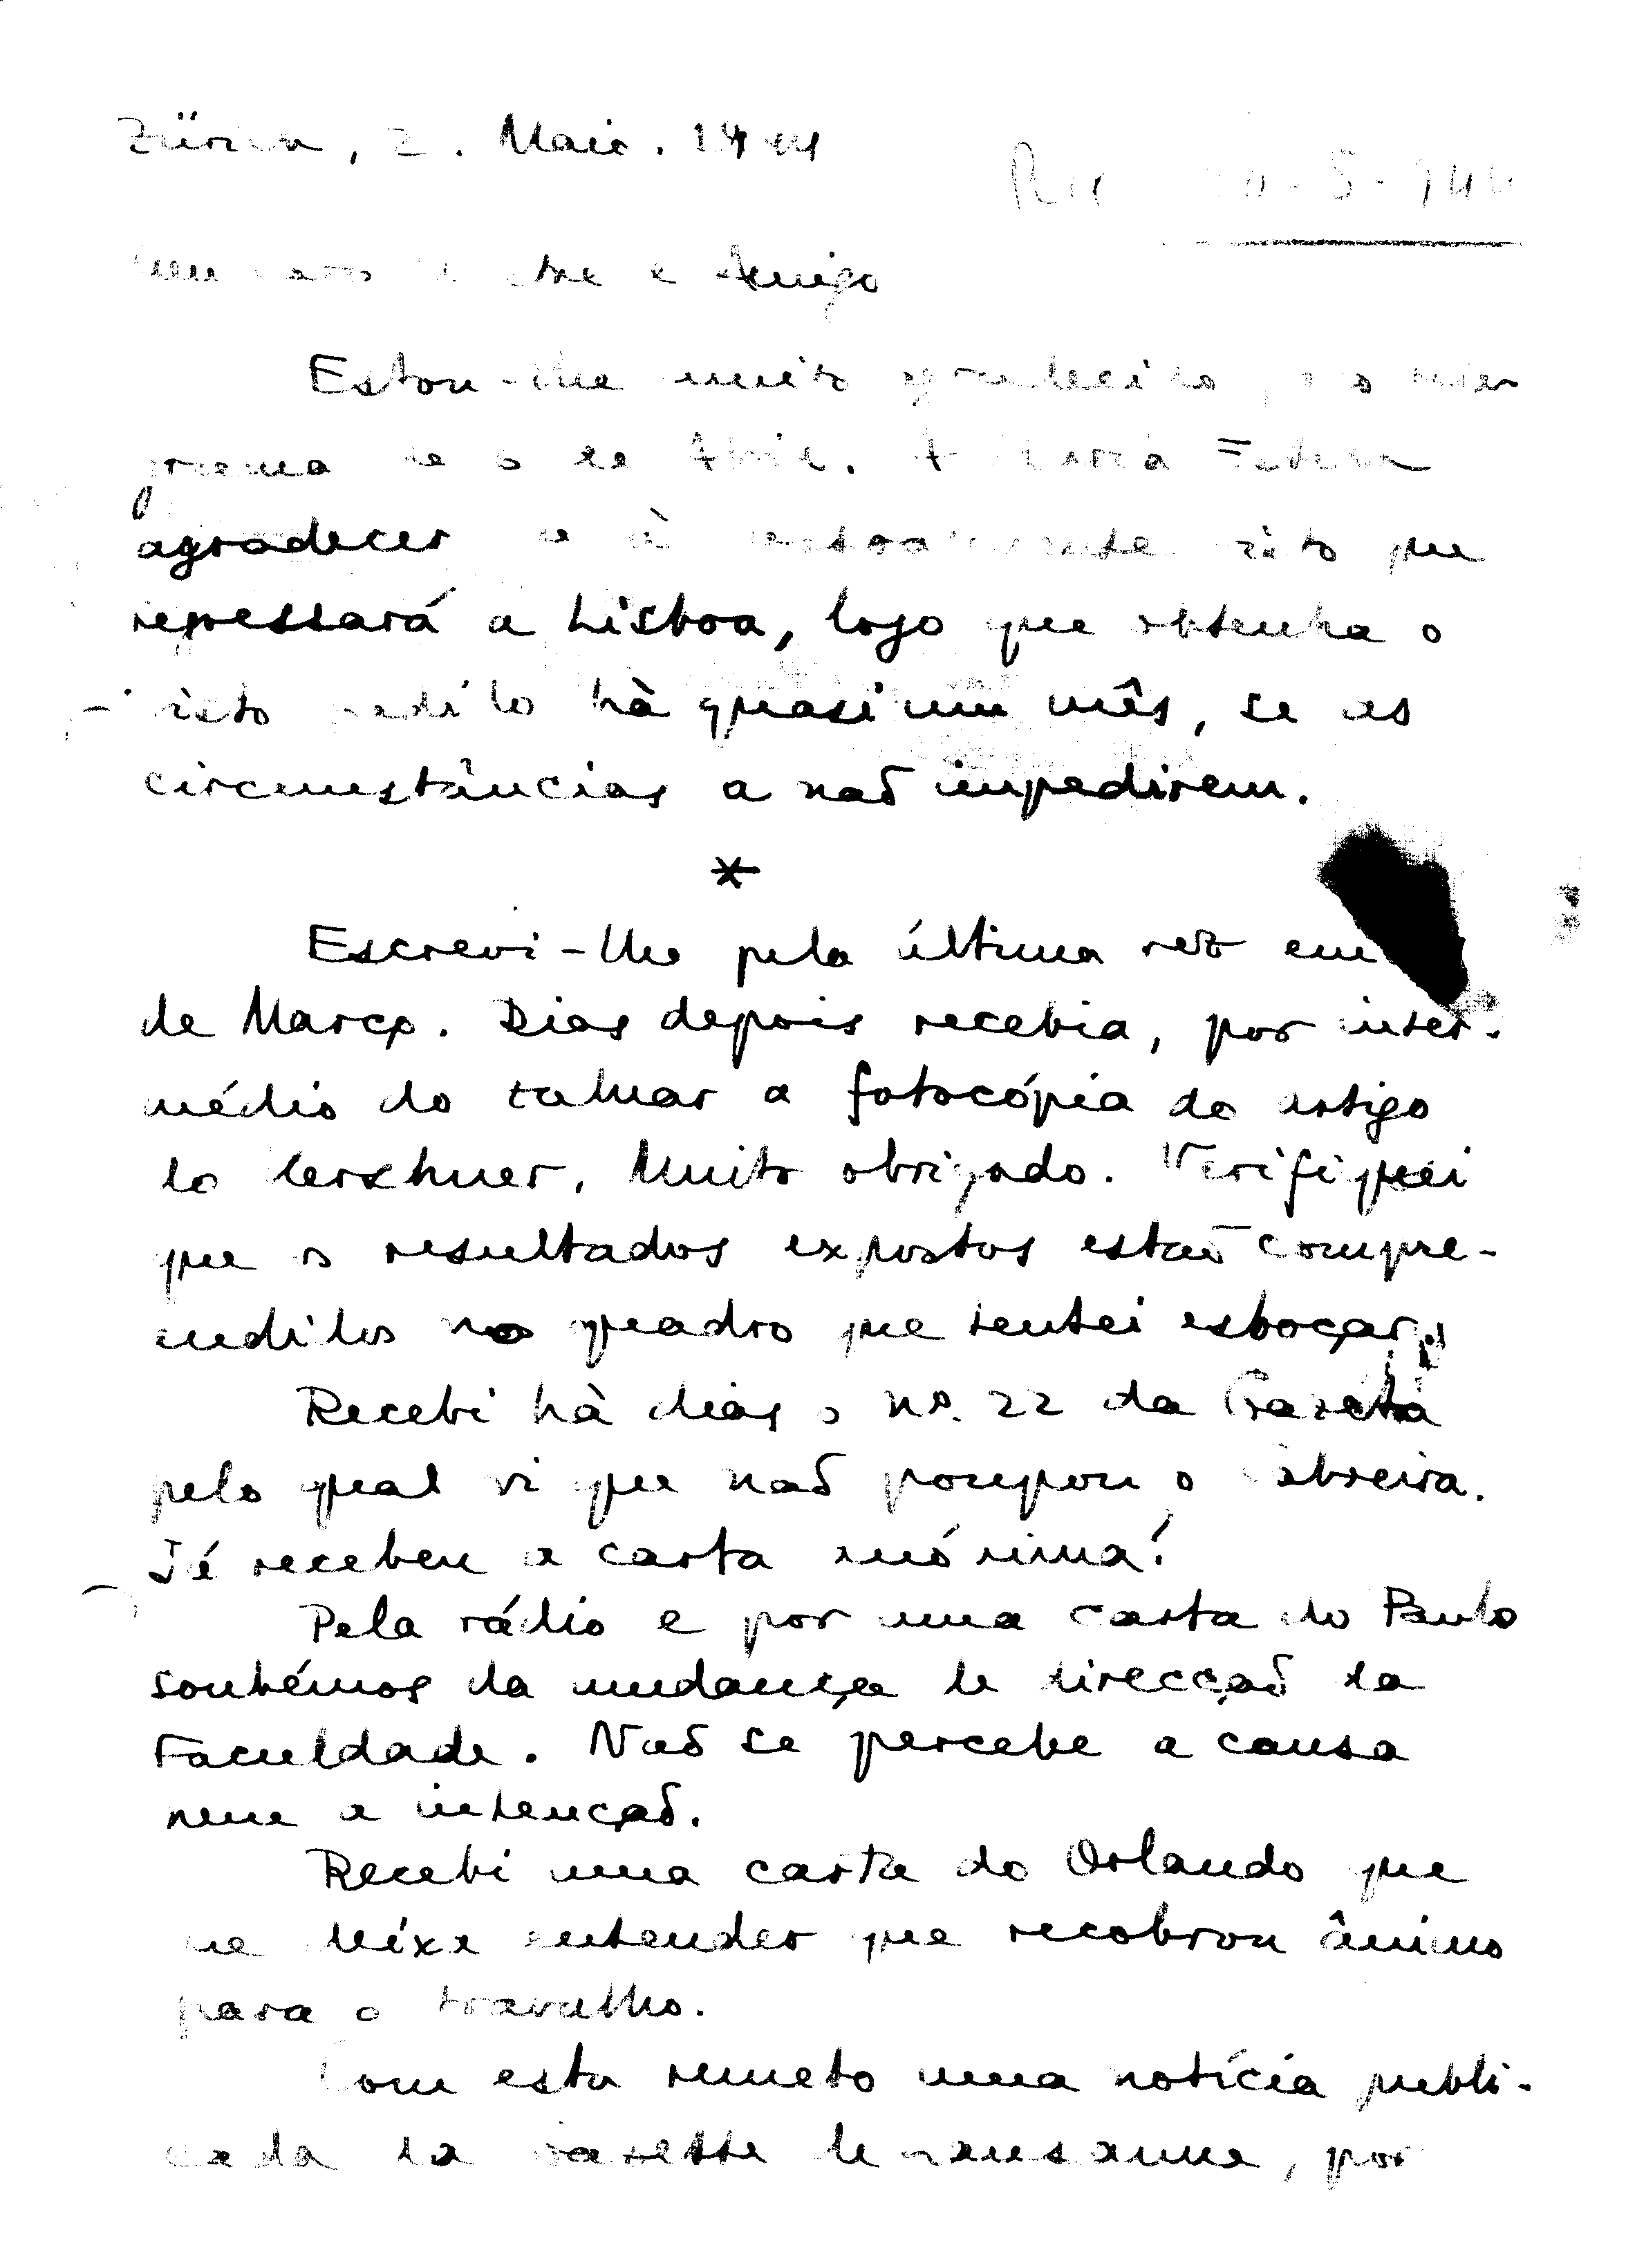 Zürich, 2. Maio. 1944
10-5-944
Meu caro Mestre e Amigo
Estou-lhe muito agradecido pelo
grama de 6 de Abril. A Maria
agradecer-lhe-à pessoalmente visto que
regressará a Lisboa, logo que obtenha o
visto pedido hà quasi um mês, se as
circunstâncias a naõ impedirem.
*
Escrevi-lhe pela última vez em
de Março. Dias depois recebia, por inter-
médio do a fotocópia do artigo
do Muito obrigado. Verifiquei
que os resultados expostos estaõ compre-
endidos no quadro que tentei esboçar.
Recebi hà dias o nº. 22 da Gazeta
pelo qual vi que naõ poupou o Cabreira.
Já recebeu a carta anónima?
Pela rádio e por uma carta do Paulo
soubémos da mudança de direcçaõ da
Faculdade. Naõ se percebe a causa
nem a intençaõ.
Recebi uma carta do Orlando que
me deixa entender que recobrou ânimo
para o trabalho.
Com esta remeto uma notícia publi-
cada da Gazette de Lausanne, por